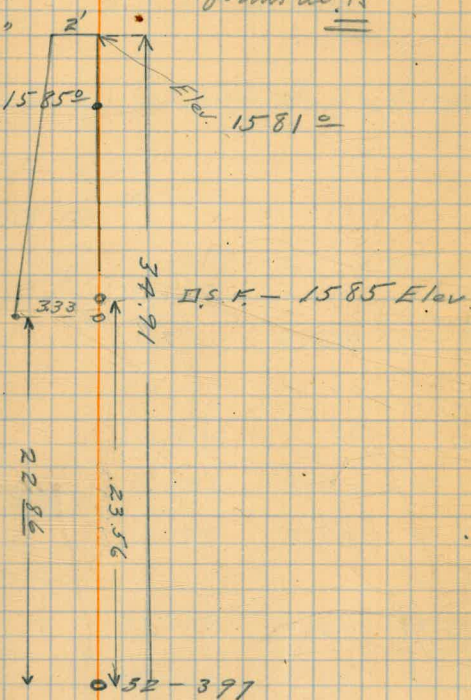 2'
1585º
Elev. 1581º
34.91
3.33
D.S.F. - 1585 Elev.
22.86
23.56
52-397